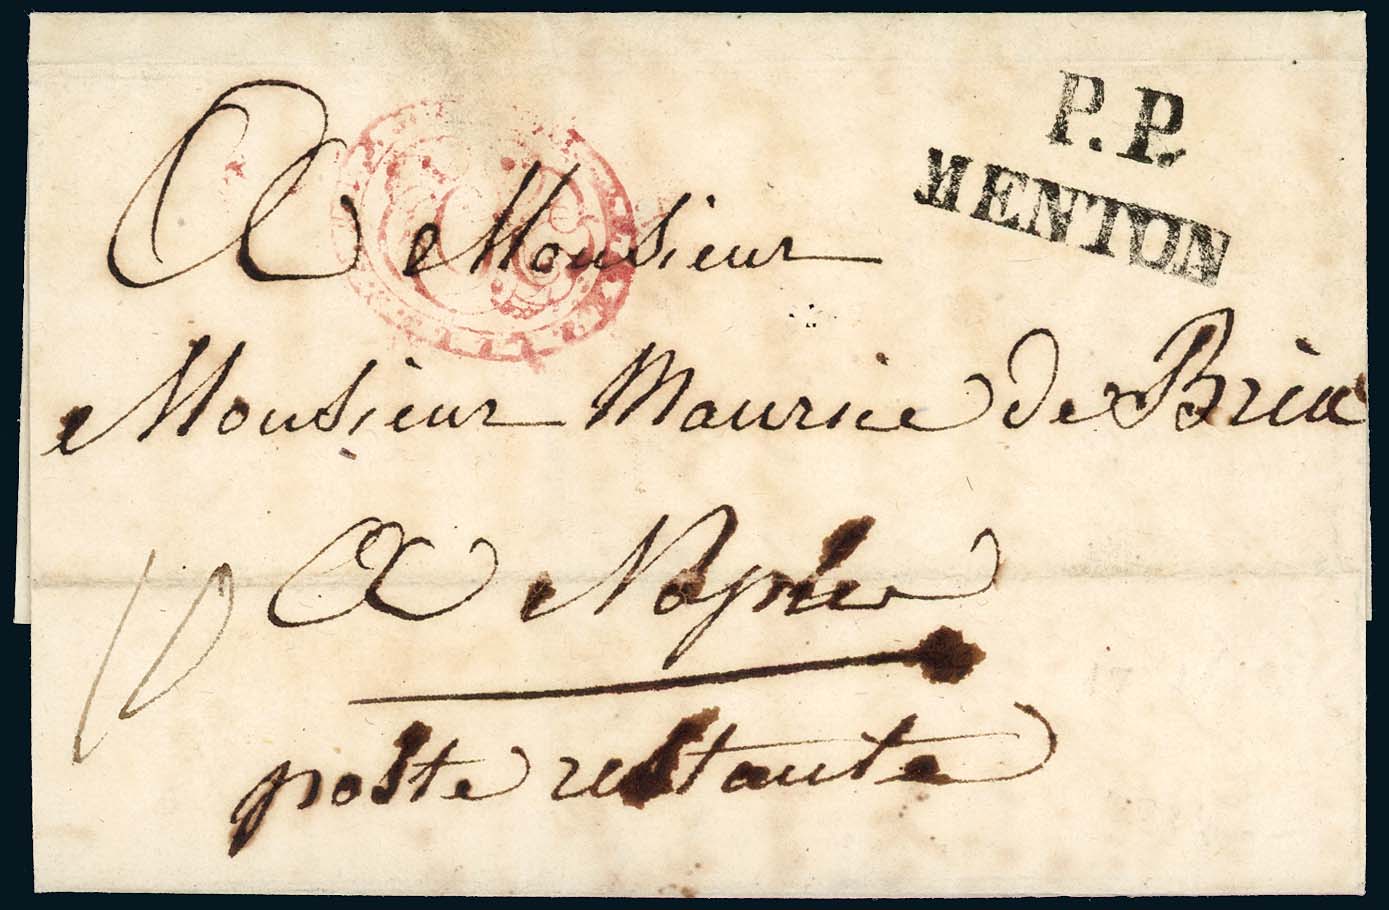 P.P.
MENTON
A Monsieur
Monsieur Maurice de Brea
A Naples
poste restante
10